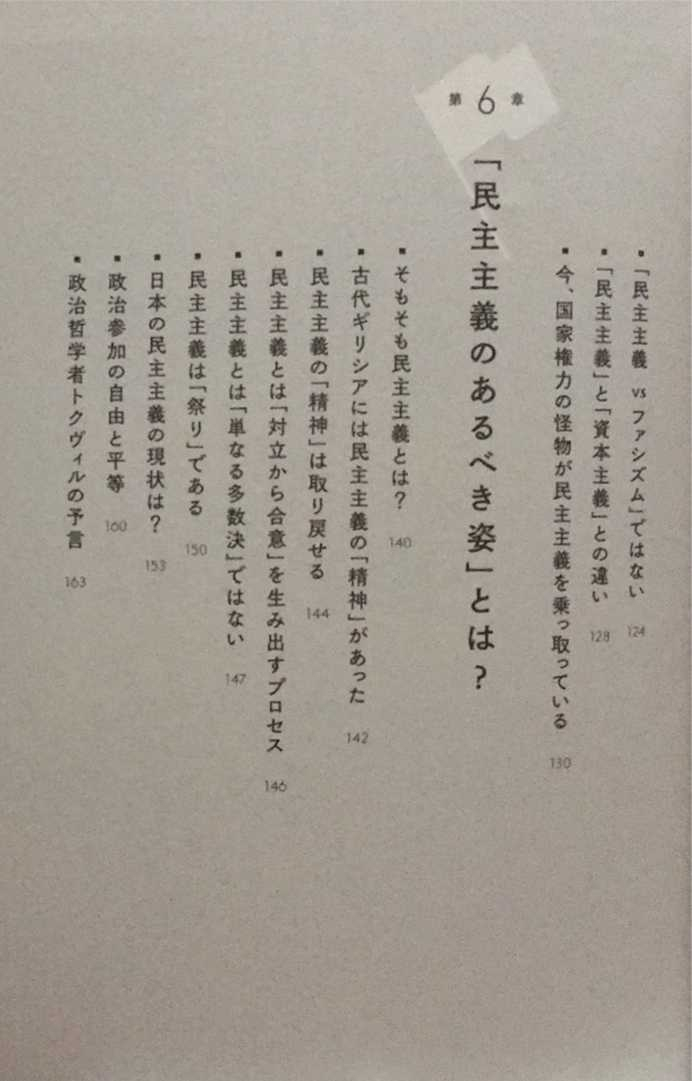 ■「民主主義 vs ファシズム」ではない 124
■「民主主義」と「資本主義」との違い 128
■今、国家権力の怪物が民主主義を乗っ取っている 130
第6章
「民主主義のあるべき姿」とは？
■そもそも民主主義とは？ 140
■古代ギリシアには民主主義の「精神」があった 142
■民主主義の「精神」は取り戻せる 144
■民主主義とは「対立から合意」を生み出すプロセス 146
■民主主義とは「単なる多数決」ではない 147
■民主主義は「祭り」である 150
■日本の民主主義の現状は？ 153
■政治参加の自由と平等 160
■政治哲学者トクヴィルの予言 163